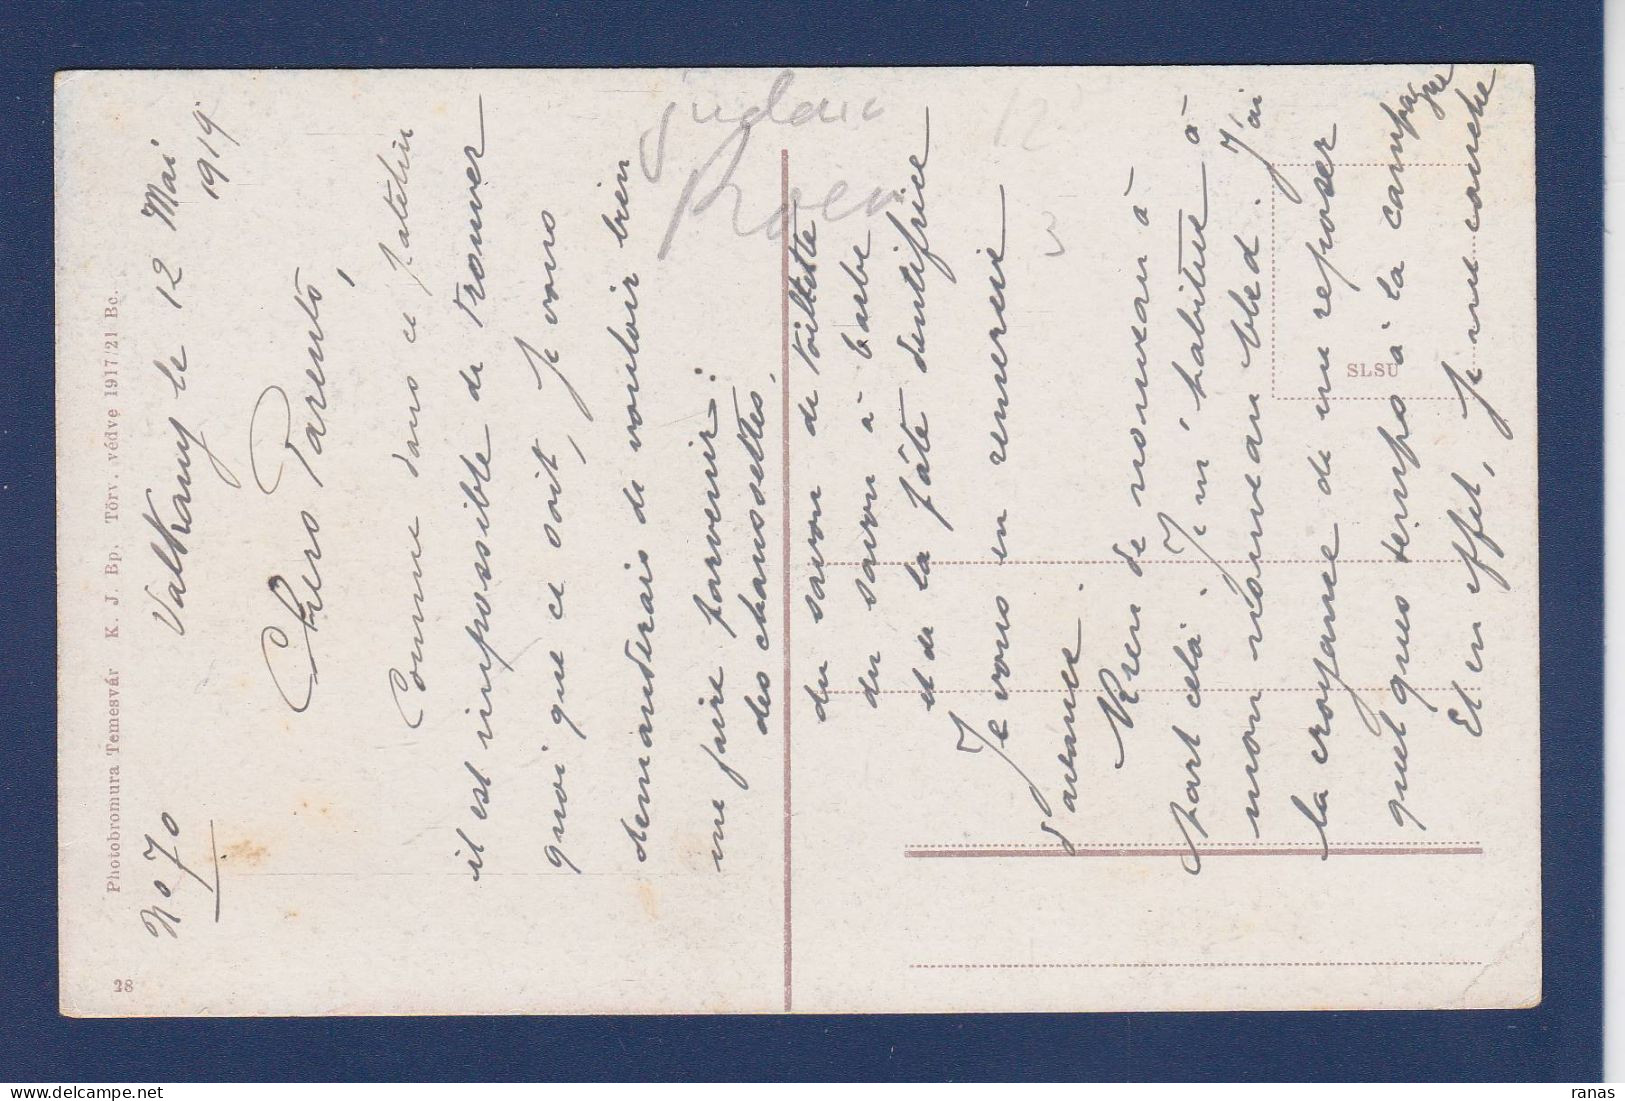 No 70
Valkany le 12 Mai
1919
Chers Parents,
Comme dans ce patelin
il est impossible de trouver
quoi que ce soit, Je vous
demanderais de vouloir bien
me faire parvenir :
des chaussettes,
du savon de toilette
du savon à barbe
et de la pâte dentifrice
Je vous en remercie
d'avance.
Rien de nouveau à
part cela. Je m'habitue à
mon nouveau bled. J'ai
la croyance de me reposer
quelques temps à la campagne
Et en effet, Je me couche
judaic
12
3
Photobromura Temesvár K. J. Bp. Törv. védve 1917/21 Bc.
28
SLSU
ranas